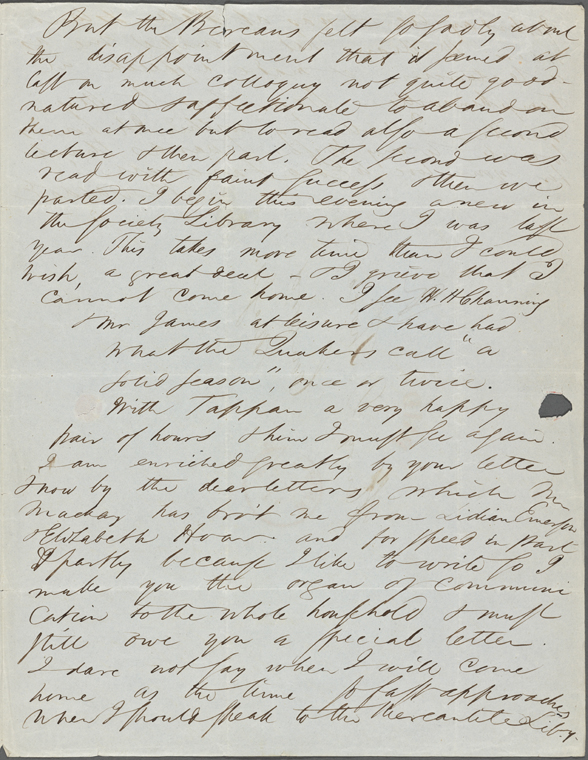 But the Bereans felt so sadly about
the disappointment that it seemed at
last on much colloquy not quite good-
natured & affectionate to abandon
them at once but to read also a second
lecture & then part. The second was
read with faint success & then we
parted. I begin this evening anew in
the Society Library where I was last
year. This takes more time than I could
wish, a great deal - & I grieve that I
cannot come home. I see W. H. Channing
& Mr James at leisure & have had
what the Quakers call "a
solid season", once or twice.
With Tappan a very happy
pair of hours & him I must see again.
I am enriched greatly by your letter
& now by the dear letters which Mr
Mackay has bro't me from Lidian Emerson
& Elizabeth Hoar. and for speed in part
& partly because I like to write so I
make you the organ of communi
cation to the whole household & must
still owe you a special letter.
I dare not say when I will come
home as the time so fast approaches
when I should speak to the Mercantile Liby.